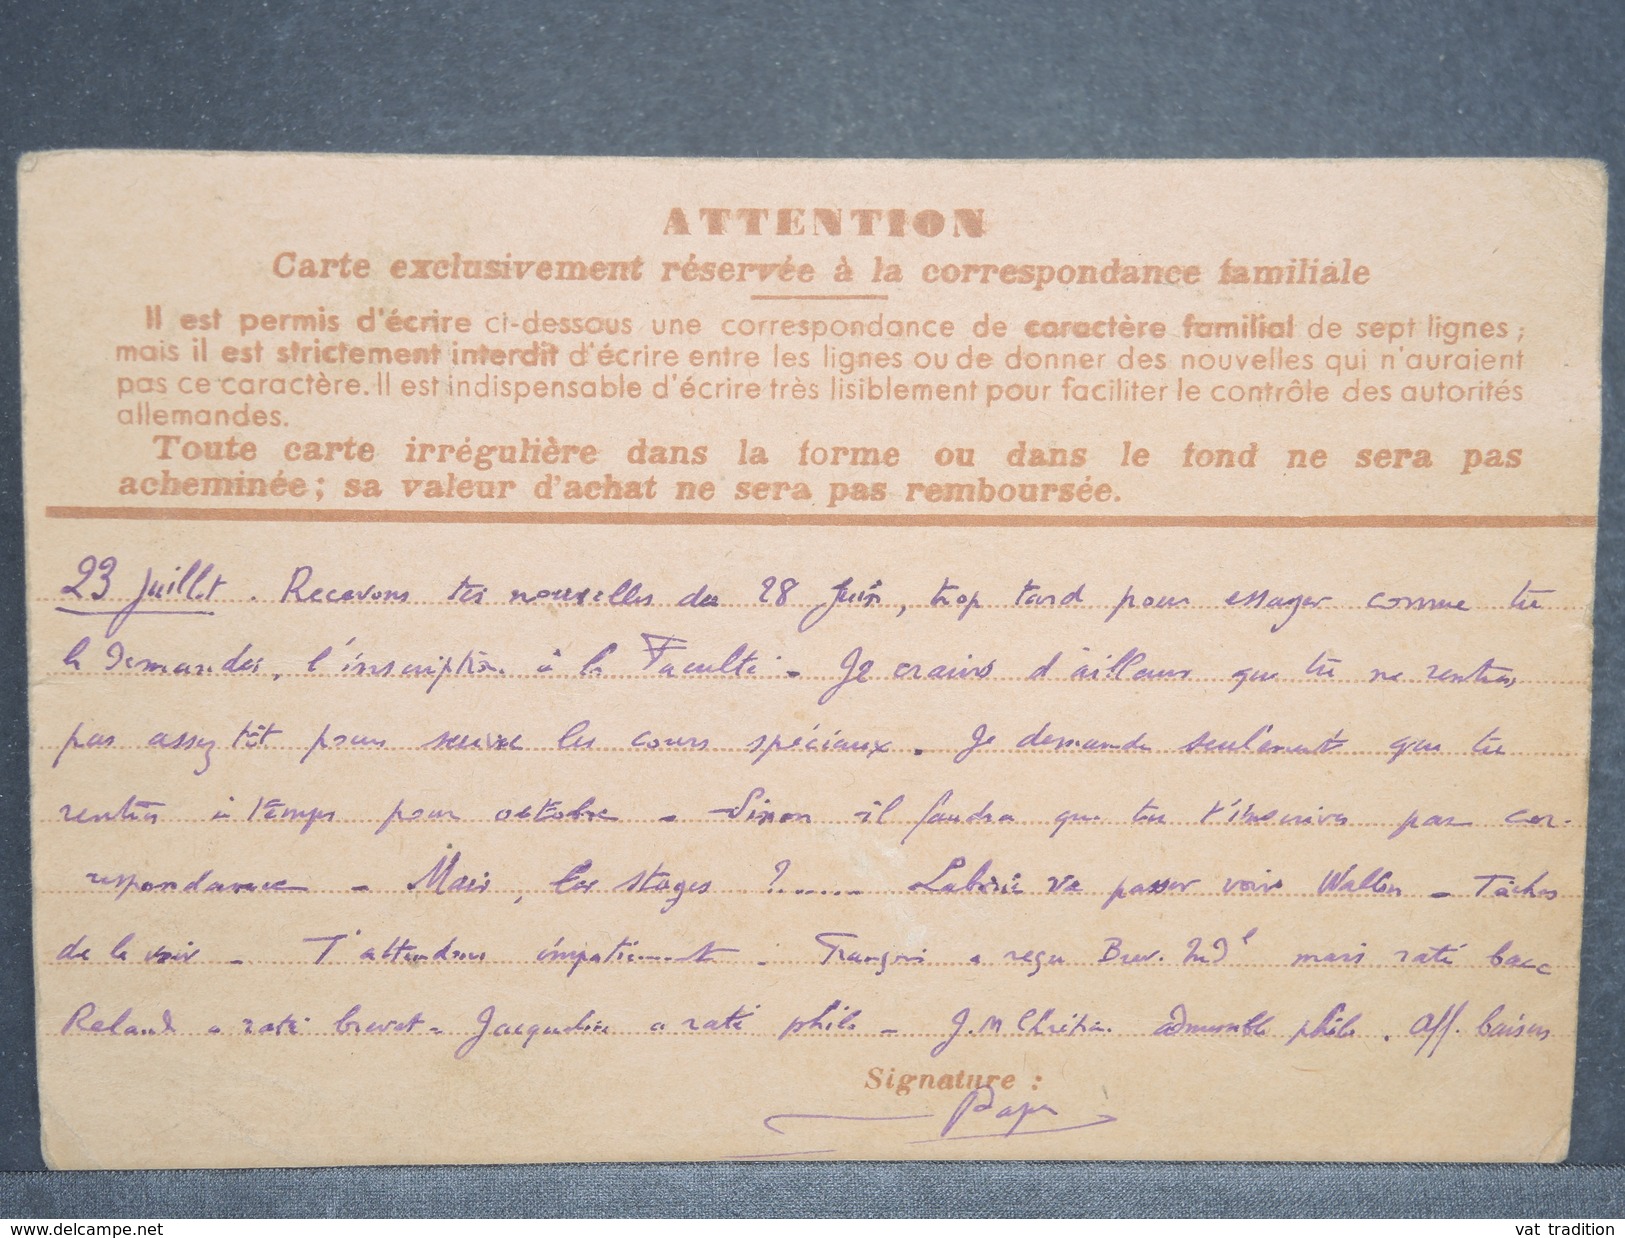 ATTENTION
Carte exclusivement réservée à la correspondance familiale
Il est permis d'écrire ci-dessous une correspondance de caractère familial de sept lignes ;
mais il est strictement interdit d'écrire entre les lignes ou de donner des nouvelles qui n'auraient
pas ce caractère. Il est indispensable d'écrire très lisiblement pour faciliter le contrôle des autorités
allemandes.
Toute carte irrégulière dans la forme ou dans le fond ne sera pas
acheminée ; sa valeur d'achat ne sera pas remboursée.
23 Juillet. Recevons tes nouvelles du 28 Juin, trop tard pour essayer comme tu
le demandes, l'inscription à la Faculté - Je crains d'ailleurs que tu ne rentres
pas assez tôt pour suivre les cours spéciaux. Je demande seulement que tu
rentres à temps pour octobre - Sinon il faudra que tu t'inscrives par cor-
respondance - Mais, les stages ?..... va passer voir Wallon - Tâches
de le voir - T'attendons impatiemment. François a reçu Brev. mais raté bacc
Roland a raté brevet - Jacqueline a raté philo - J.M Chrétien admissible philo. Aff. baisers
Signature :
Papa
delcampe.net
vat tradition